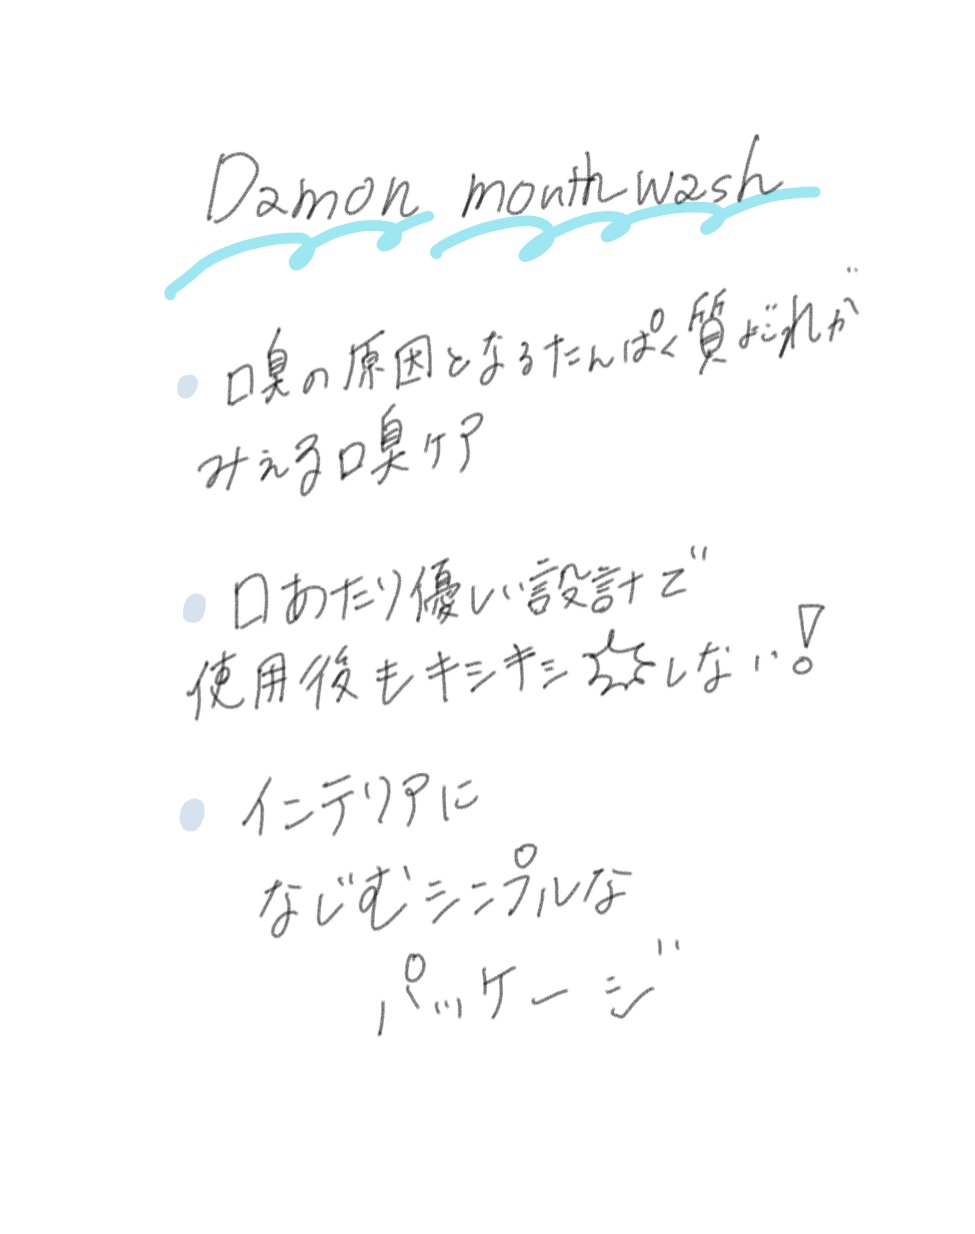 Damon mouthwash
口臭の原因となるたんぱく質よごれが
みえる口臭ケア
口あたり優しい設計で
使用後もキシキシしない!
インテリアに
なじむシンプルな
パッケージ